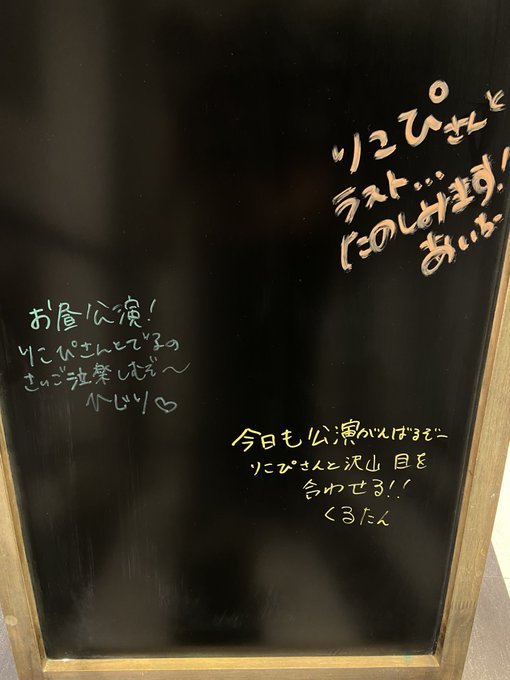 りこぴさんと
ラスト...
たのしみます!
あいちー
お昼公演!
りこぴさんとでるの
さいご泣 楽しむぞ〜
ひじり♡
今日も公演がんばるぞー
りこぴさんと沢山 目を
合わせる!!
くるたん